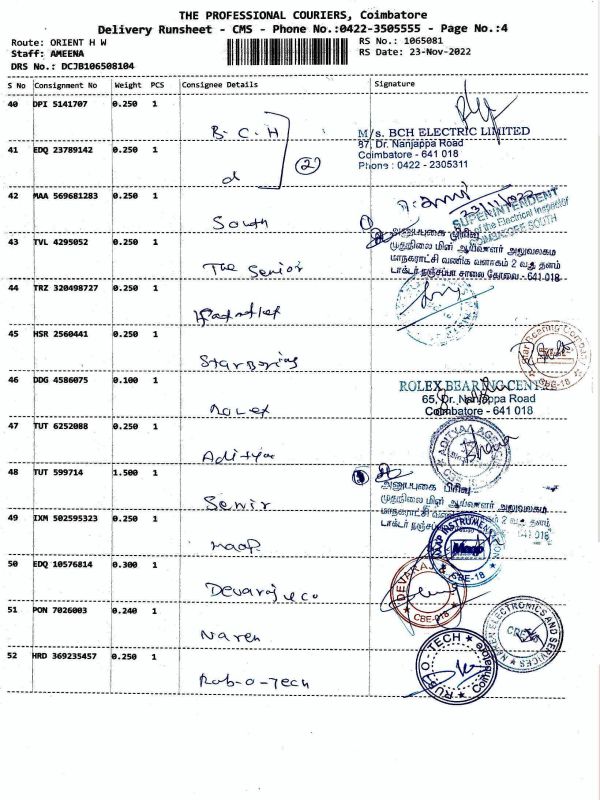 THE PROFESSIONAL COURIERS, Coimbatore
Delivery Runsheet - CMS - Phone No.:0422-3505555 - Page No.:4
Route: ORIENT H W
RS No.: 1065081
Staff: AMEENA
RS Date: 23-Nov-2022
DRS No.: DCJB106508104
S No Consignment No Weight PCS Consignee Details Signature
40 DPI 5141707 0.250 1
B.C.H
M/s. BCH ELECTRIC LIMITED
87, Dr. Nanjappa Road
Coimbatore - 641 018
Phone : 0422 - 2305311
41 EDQ 23789142 0.250 1
d
2
42 MAA 569681283 0.250 1
South
23/11/2022
SUPERINTENDENT
of the Electrical Inspector
COIMBATORE SOUTH
43 TVL 4295052 0.250 1
The Senior
அனுப்புகை பிரிவு
முதுநிலை மின் ஆய்வாளர் அலுவலகம
மாநகராட்சி வணிக வளாகம் 2 வது தளம்
டாக்டர் நஞ்சப்பா சாலை, கோவை - 641 018
44 TRZ 320498727 0.250 1
45 HSR 2560441 0.250 1
Star Boring
Star Bearing Company
CBE-18
46 DDG 4586075 0.100 1
Rolex
ROLEX BEARING CENTRE
65, Dr. Nanjappa Road
Coimbatore - 641 018
47 TUT 6252088 0.250 1
Aditya
ADITYAA AGENCY
48 TUT 599714 1.500 1
Senir
அனுப்புகை பிரிவு
முதுநிலை மின் ஆய்வாளர் அலுவலகம
2 வது தளம்
641 018
49 IXM 502595323 0.250 1
maap
MAAP INSTRUMENTATION
Maap
CBE-18
50 EDQ 10576814 0.300 1
Devaraj & co
DEVARAJ &
CBE-018
51 PON 7026003 0.240 1
Naren
NAREN ELECTRONICS AND SERVICES
52 HRD 369235457 0.250 1
Rob-o-Tech
RUB-O-TECH
Coimbatore